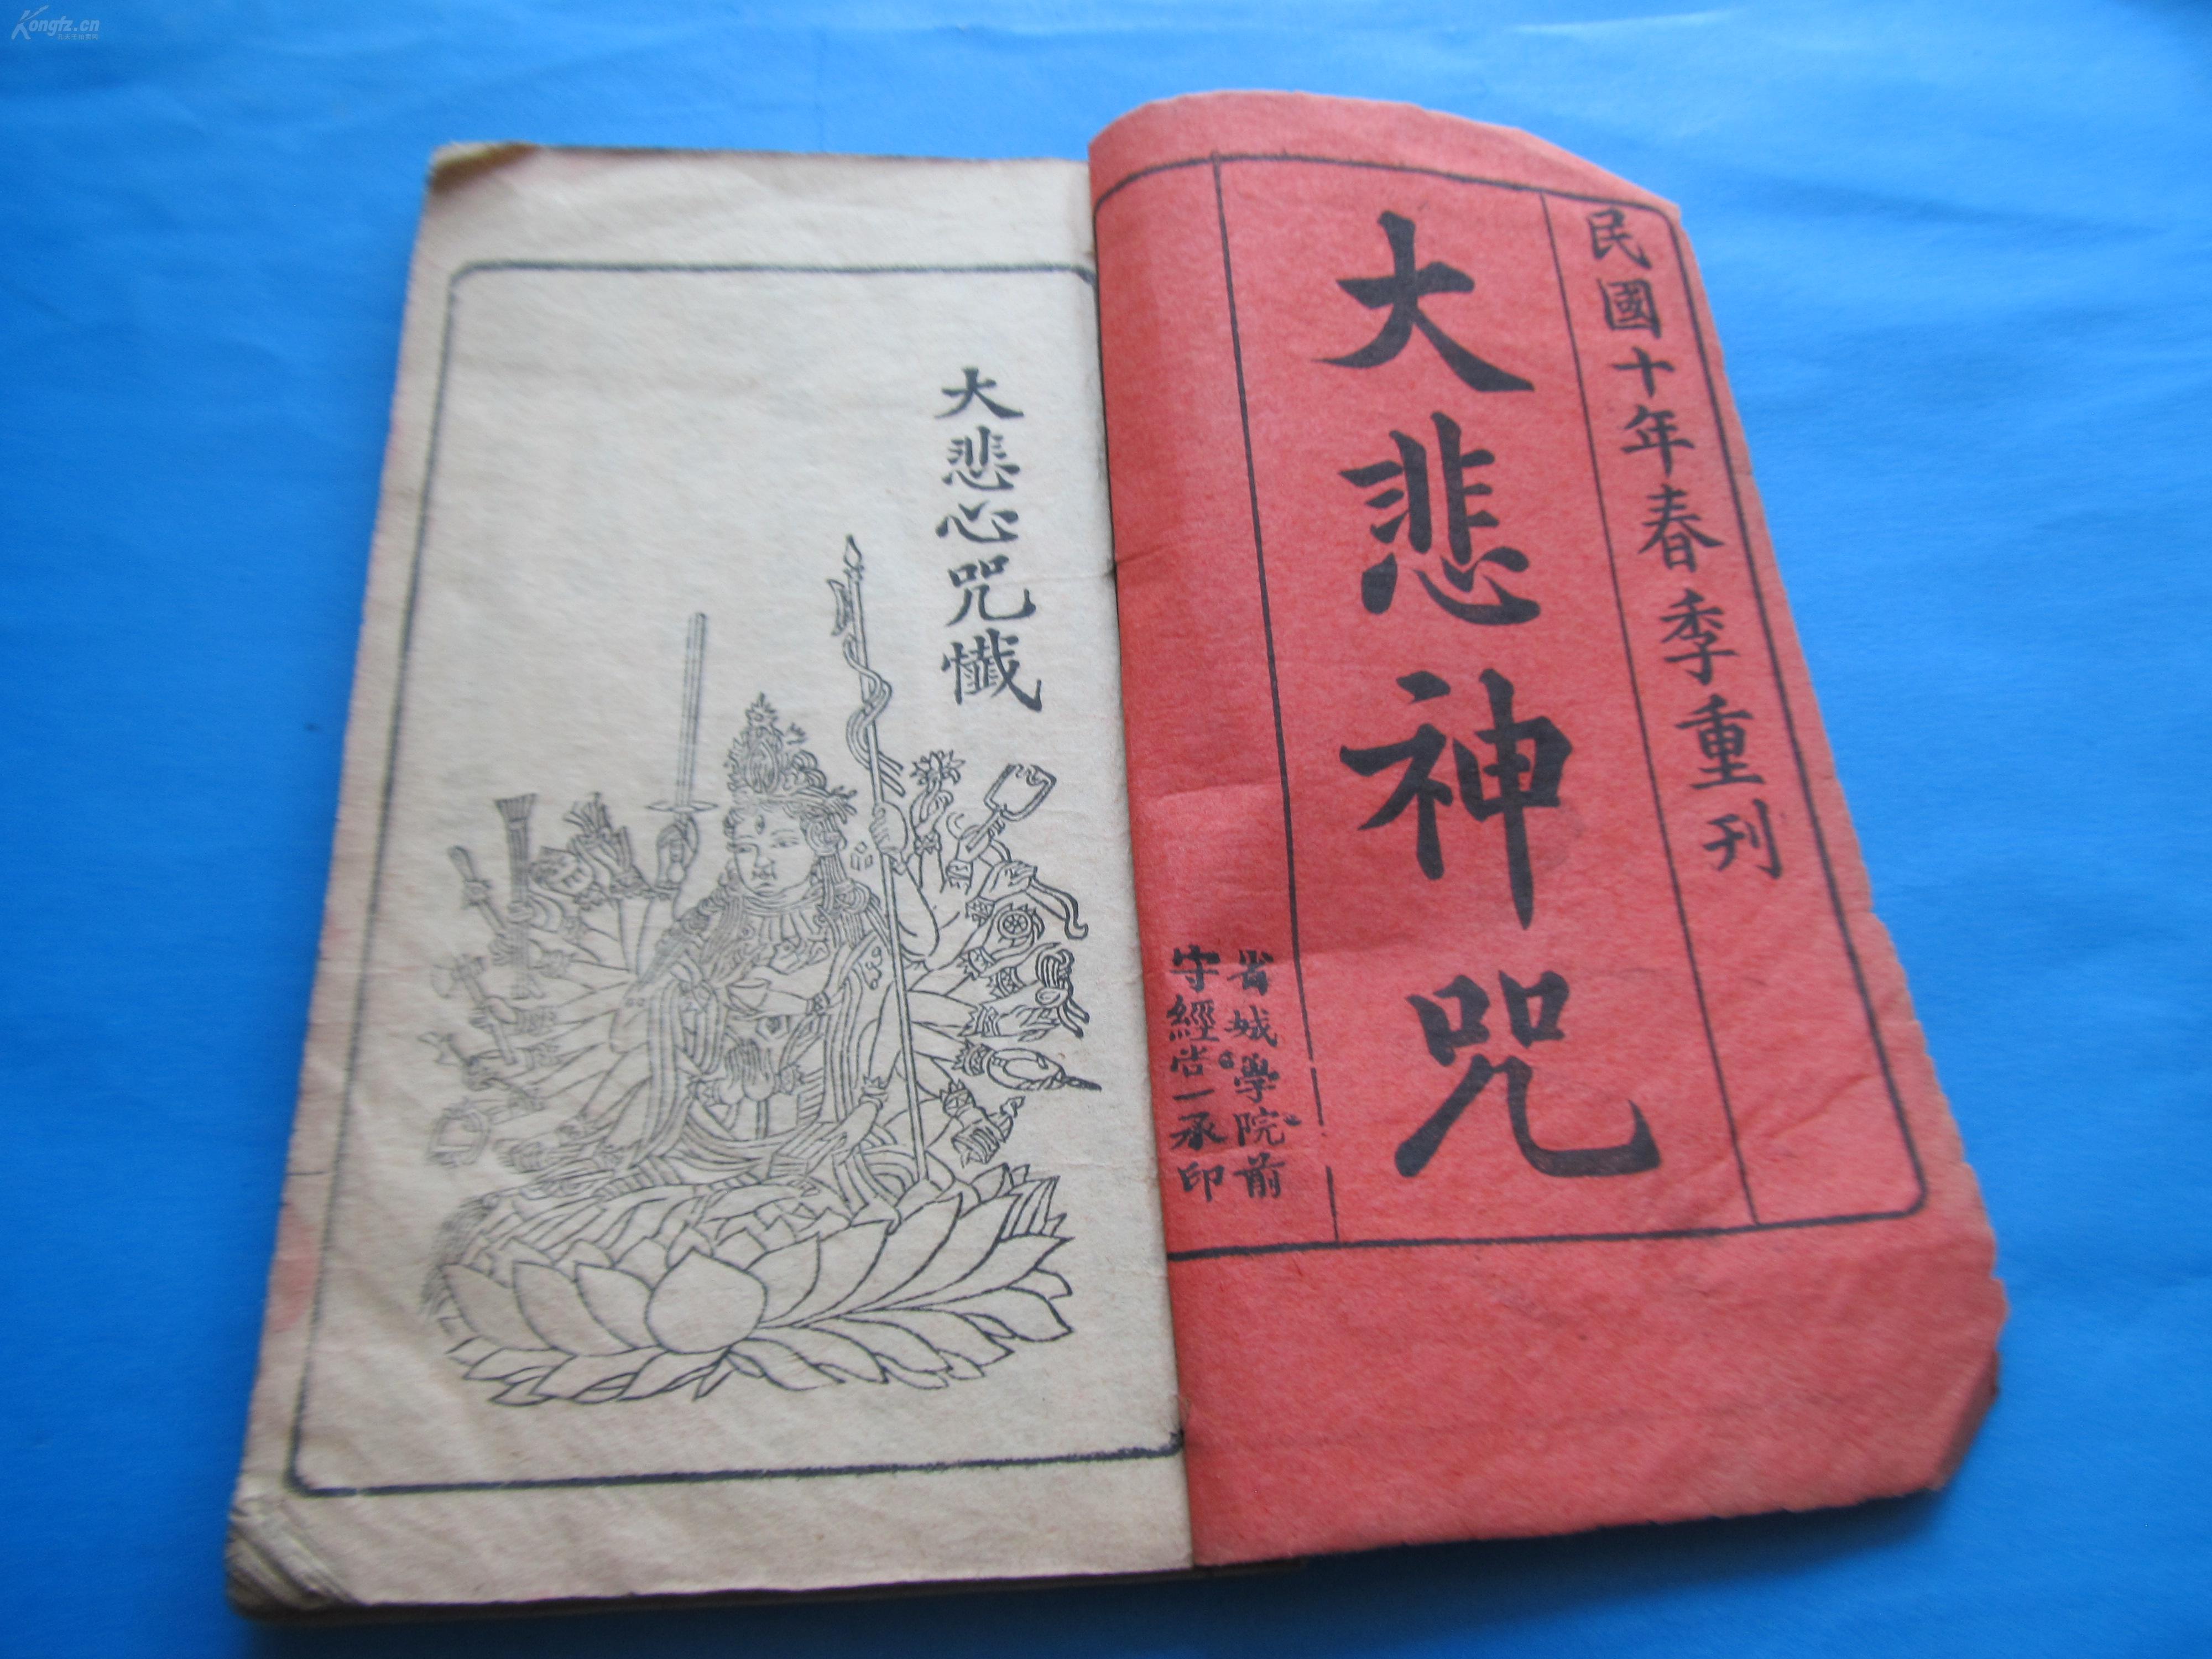 民國十年春季重刊
大悲神咒
省城學院前
守經堂一承印
大悲心咒懺
Kongfz.cn